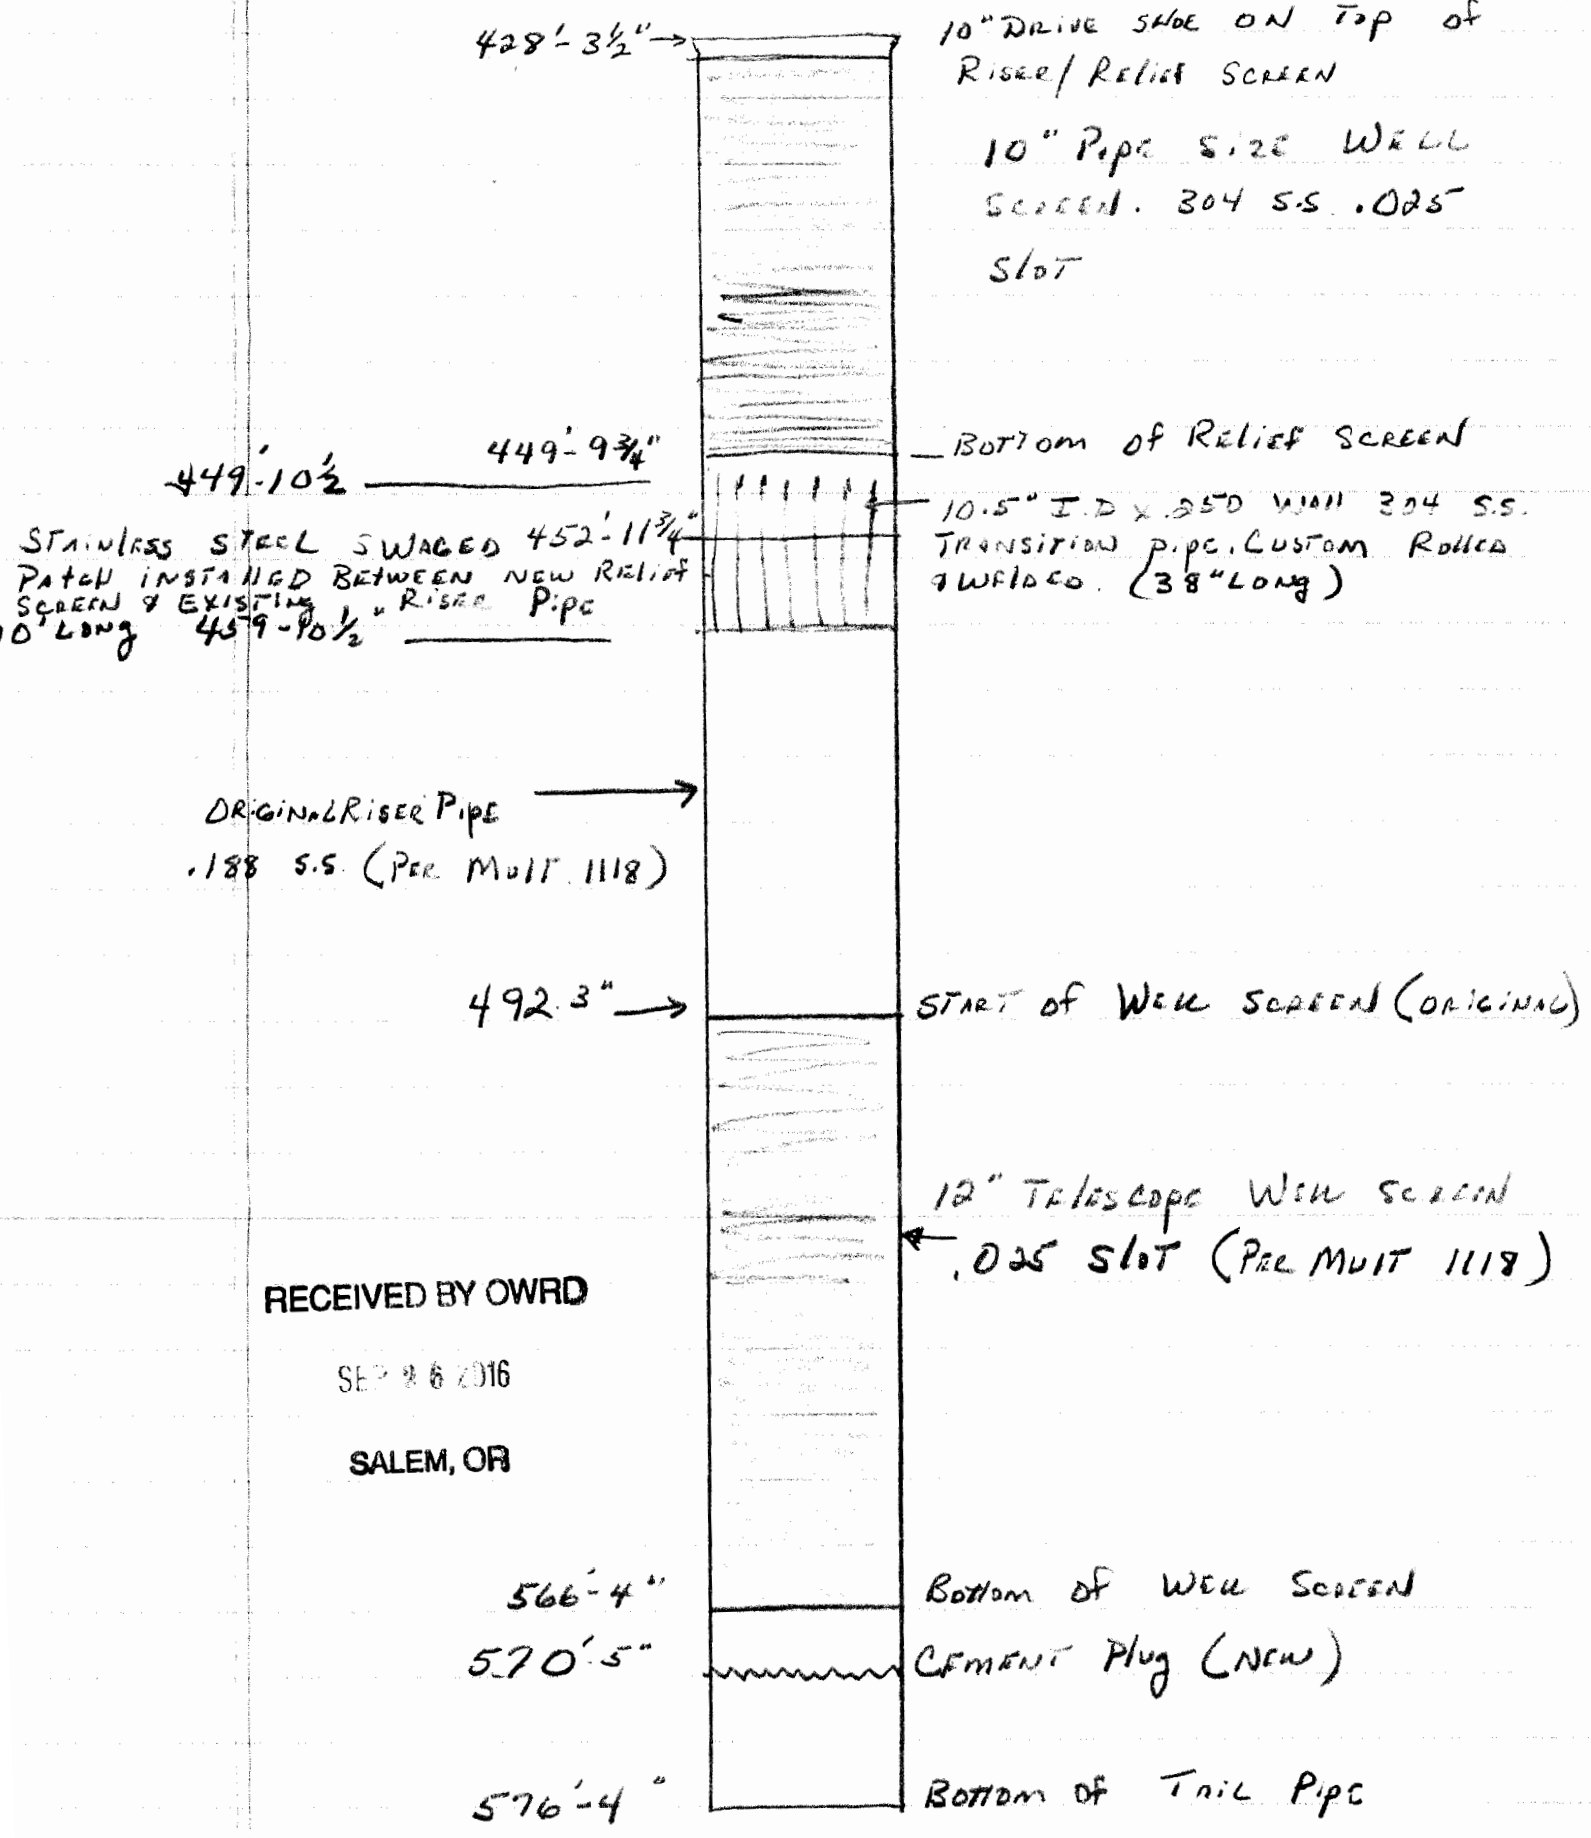 428'-3½"
10" DRIVE SHOE ON TOP OF
RISER/RELIEF SCREEN
10" PIPE SIZE WELL
SCREEN. 304 S.S .025
SLOT
449'-9¾"
BOTTOM OF RELIEF SCREEN
449'-10½
10.5" I.D X .250 WALL 304 S.S.
TRANSITION PIPE. CUSTOM ROLLED
& WELDED. (38" LONG)
STAINLESS STEEL SWAGED 452'-11¾"
PATCH INSTALLED BETWEEN NEW RELIEF
SCREEN & EXISTING RISER PIPE
10' LONG 459'-10½"
ORIGINAL RISER PIPE
.188 S.S. (PER MULT 1118)
492.3"
START OF WELL SCREEN (ORIGINAL)
12" TELESCOPE WELL SCREEN
.025 SLOT (PER MULT 1118)
RECEIVED BY OWRD
SEP 26 2016
SALEM, OR
566'-4"
BOTTOM OF WELL SCREEN
570'-5"
CEMENT PLUG (NEW)
576'-4"
BOTTOM OF TAIL PIPE